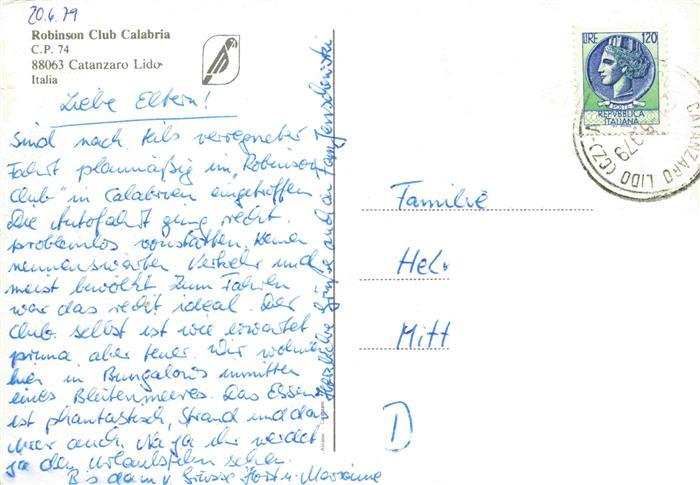 20.6.79
Robinson Club Calabria
C.P. 74
88063 Catanzaro Lido
Italia
Liebe Eltern!
Sind nach teils verregneter
Fahrt planmäßig im „Robinson
Club" in Calabrien eingetroffen.
Die Autofahrt ging recht
problemlos vonstatten. Keinen
nennenswerten Verkehr und
meist bewölkt. Zum Fahren
war das recht ideal. Der
Club selbst ist wie erwartet
prima aber teuer. Wir wohnen
hier in Bungalows inmitten
eines Blütenmeeres. Das Essen
ist phantastisch, Strand und das
Meer auch. Na ja ihr werdet
ja den Urlaubsfilm sehen.
Bis dann v. Grüsse Horst u. Marianne
Herzliche Grüße auch an Fam.
LIRE 120
POSTE
REPVBBLICA
ITALIANA
CATANZARO LIDO (CZ)
Familie
Helv
Mitt
D